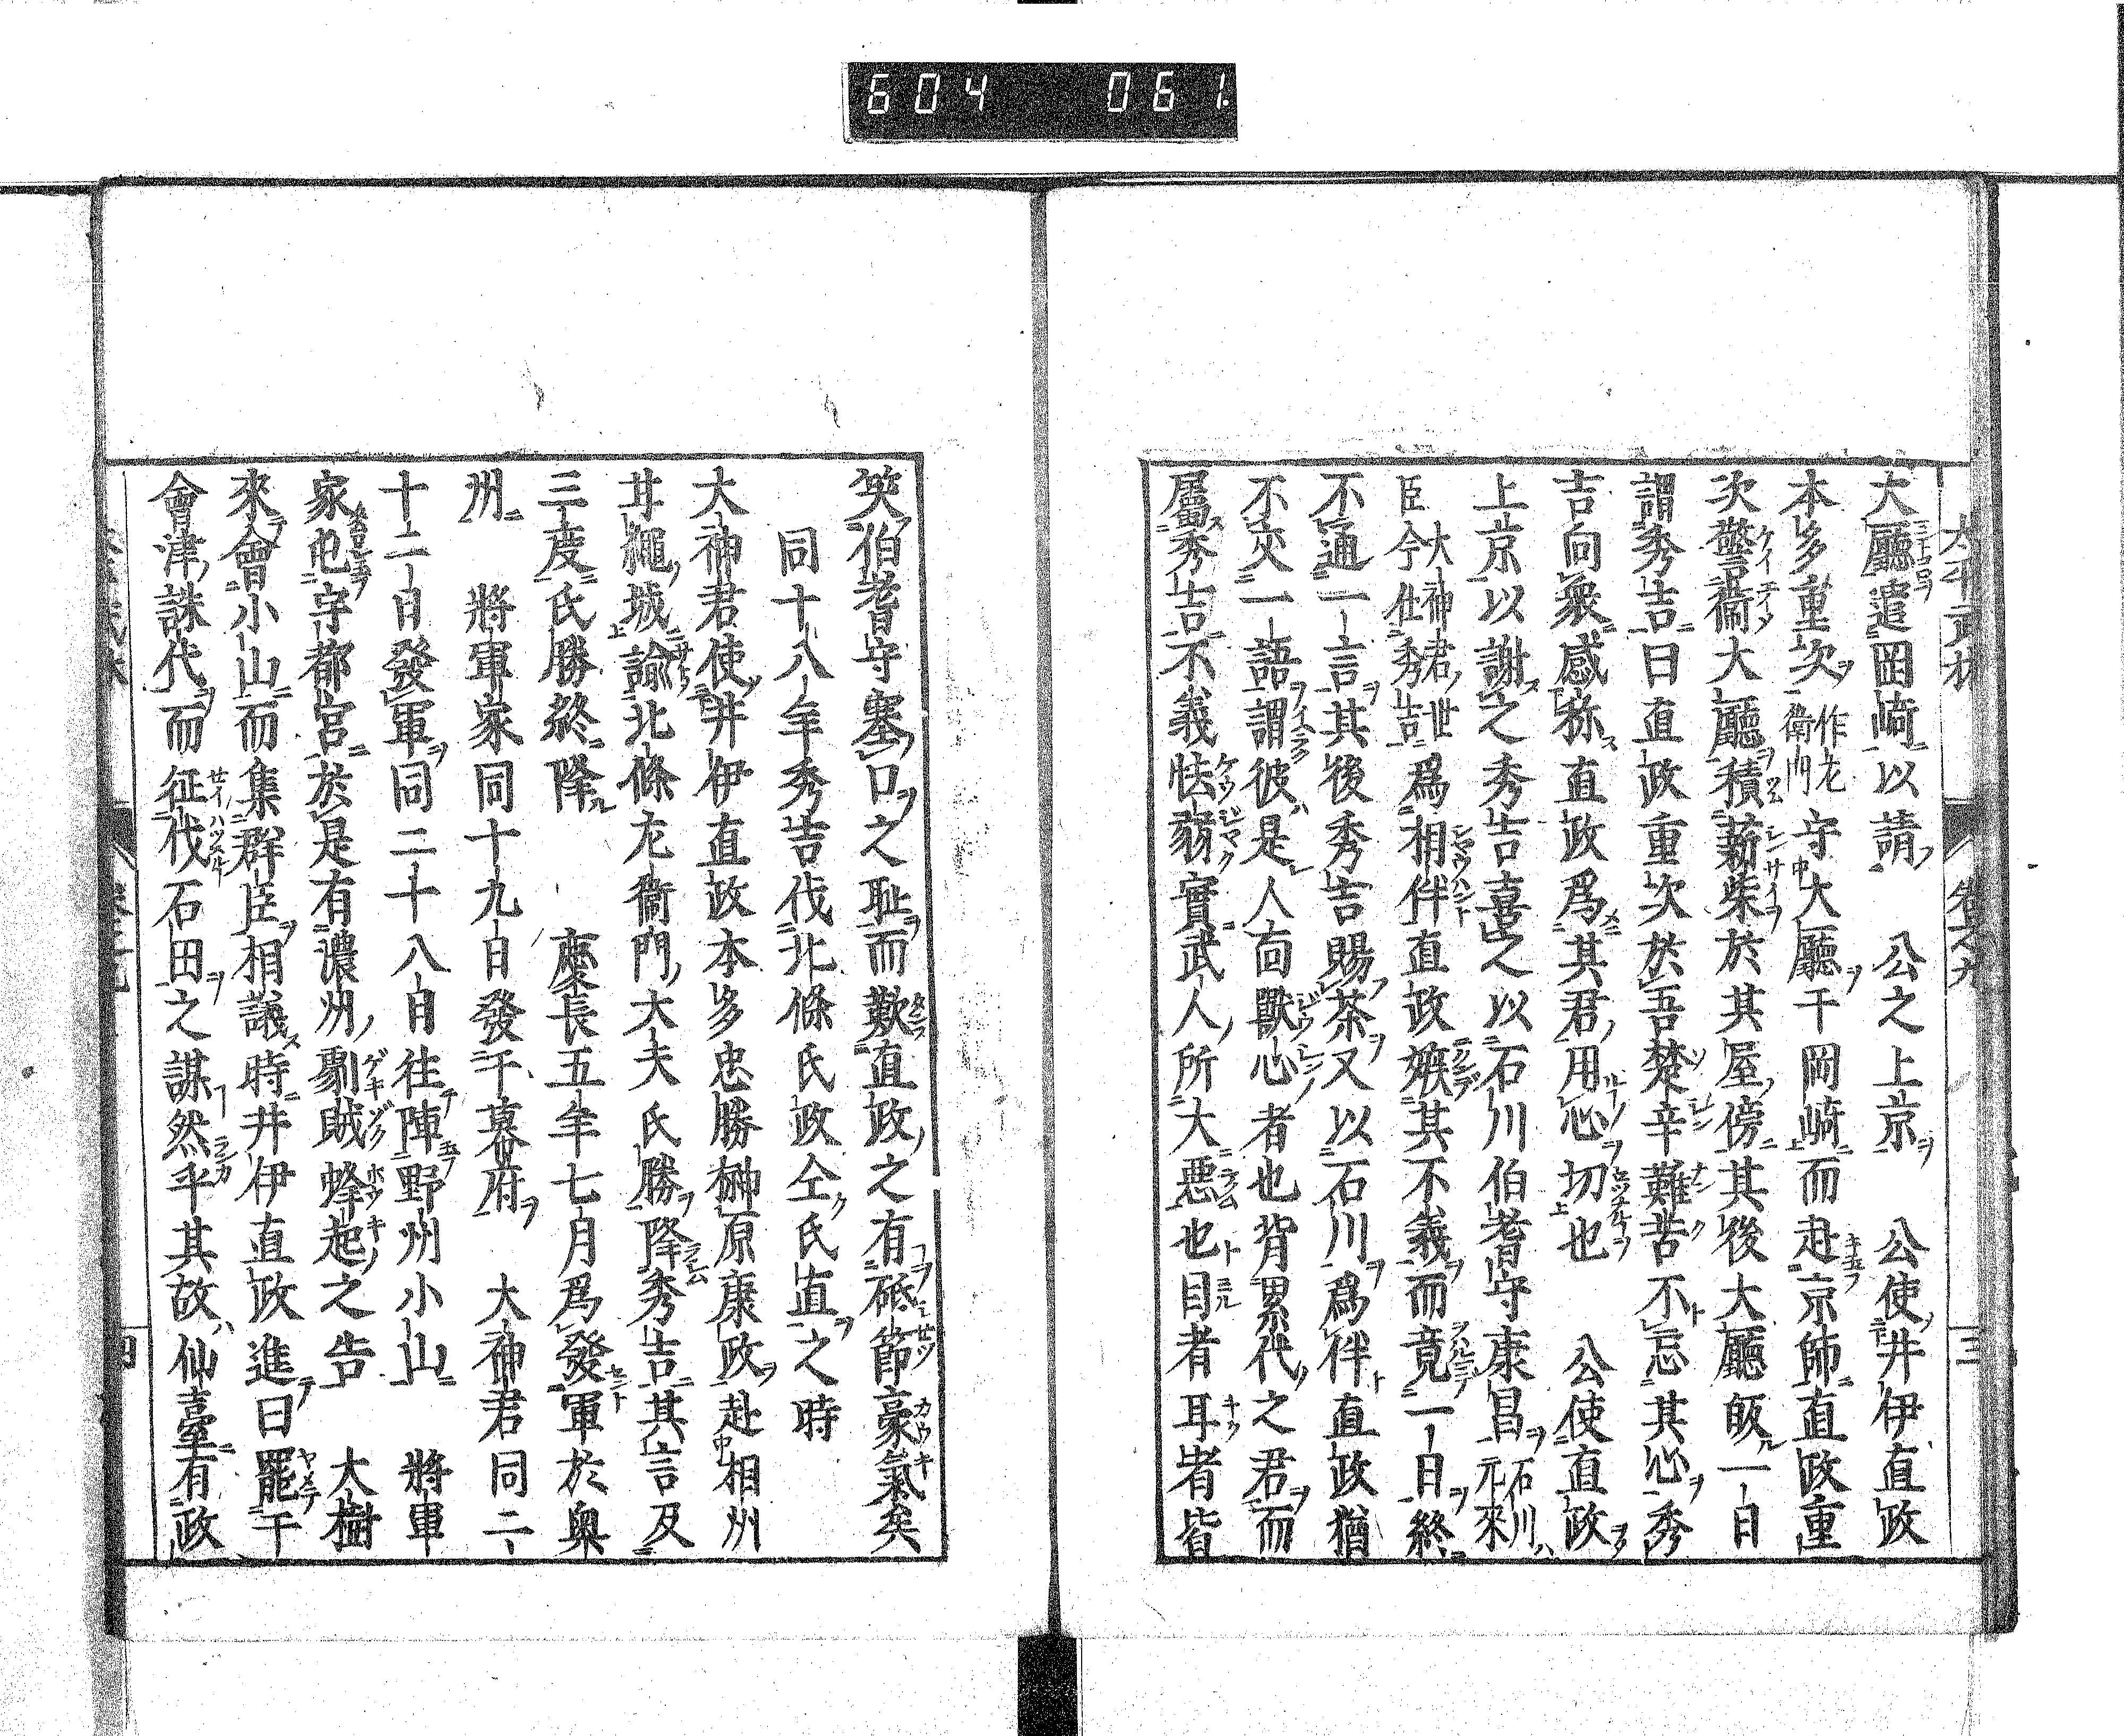 604 061.
大廳遣岡崎以請 公之上京 公使井伊直政
本多重次作左衛門守大廳于岡崎而赴京師直政重
次警衞大廳積薪柴於其屋傍其後大廳皈一日
謂秀吉曰直政重次於吾楚辛難苦不忘其心秀
吉向衆感称直政爲其君用心切也 公使直政
上京以謝之秀吉喜之以石川伯耆守康昌石川元來
臣大神君世今仕秀吉爲相伴直政嫉其不義而竟一日終
不通一言其後秀吉賜茶又以石川爲伴直政猶
不交一語謂彼是人面獸心者也背累代之君而
屬秀吉不義怯弱實武人所大惡也目者耳者皆
笑伯耆守塞口之耻而歎直政之有砥節豪氣矣
同十八年秀吉伐北條氏政仝氏直之時
大神君使井伊直政本多忠勝榊原康政赴相州
韮繩城諭北條左衞門大夫氏勝降秀吉其言及
三度氏勝終降 慶長五年七月爲發軍於奥
州 將軍家同十九日發于幕府 大神君同二
十二日發軍同二十八日往陣野州小山 將軍
家屯宇都宮於是有濃州劇賊蜂起之告 大樹
來會小山而集群臣相議時井伊直政進曰罷于
會津誅伐而征伐石田之謀然乎其故仙臺有政